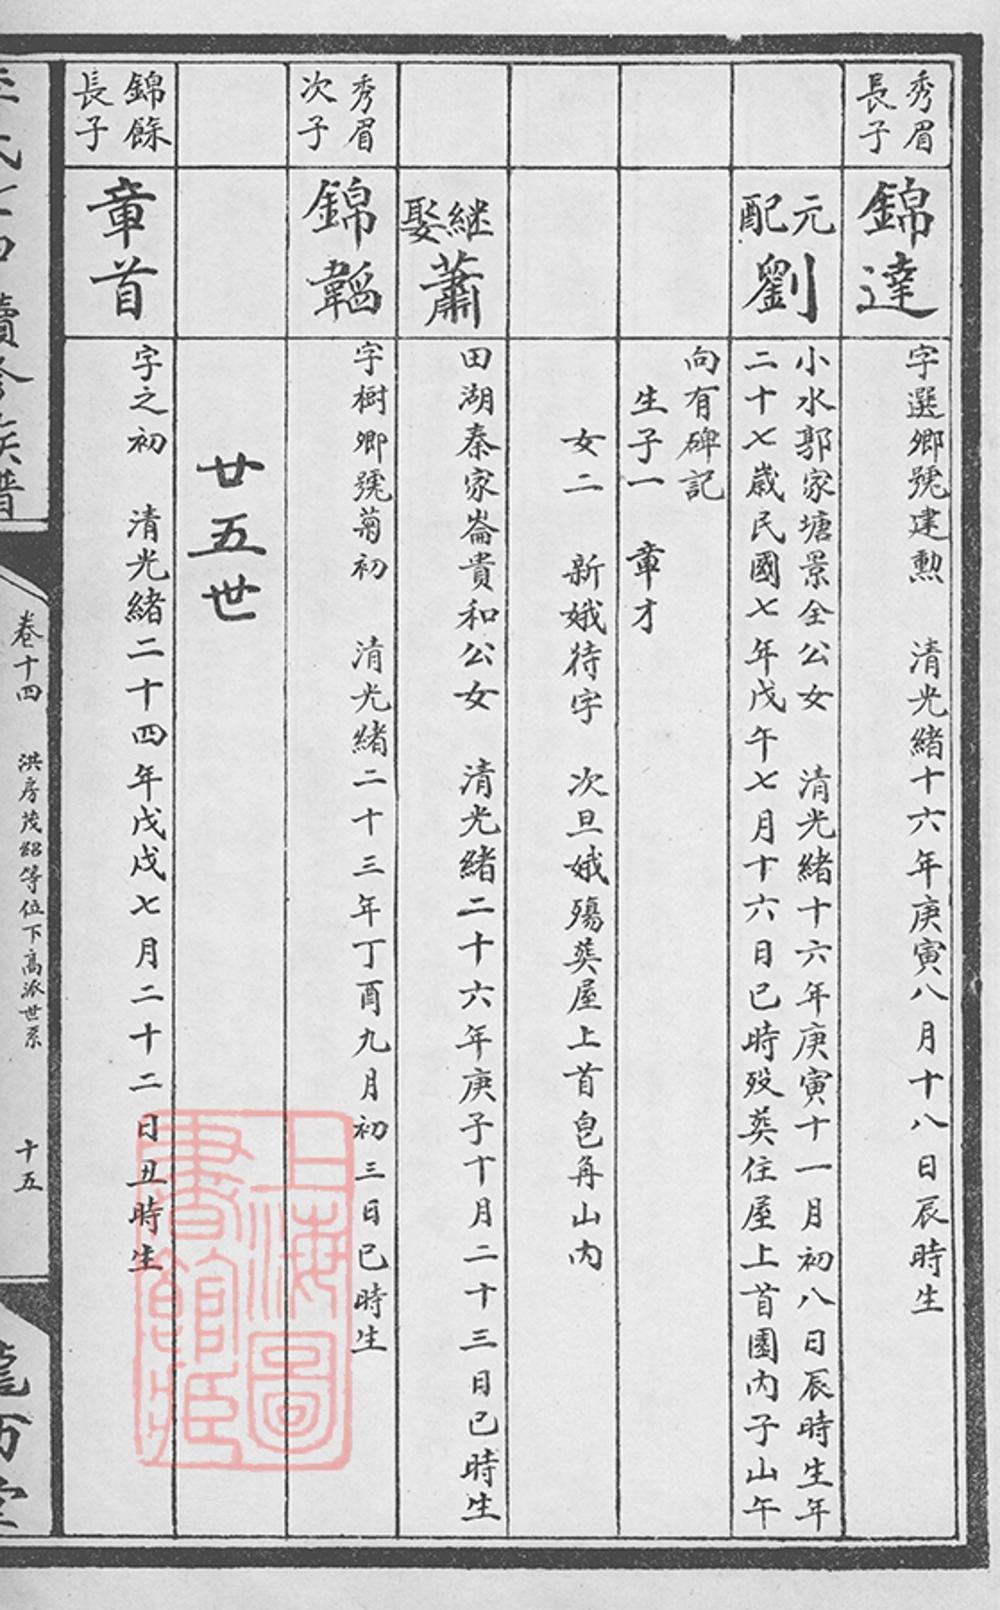 秀眉
長子
錦達
字選鄉號建勲　清光緒十六年庚寅八月十八日辰時生
元配
劉
小水郭家塘景全公女　清光緒十六年庚寅十一月初八日辰時生年
二十七歲民國七年戊午七月十六日巳時歿葬住屋上首園內子山午
向有碑記
生子一　章才
女二　新娥待字　次旦娥殤葬屋上首皂角山內
継娶
蕭
田湖秦家崙貴和公女　清光緒二十六年庚子十月二十三日巳時生
秀眉
次子
錦韜
字樹鄉號菊初　清光緒二十三年丁酉九月初三日巳時生
廿五世
錦餘
長子
章首
字之初　清光緒二十四年戊戌七月二十二日丑時生
續修族譜
卷十四　洪房茂紹等位下高派世系　十五
上海圖
書館藏